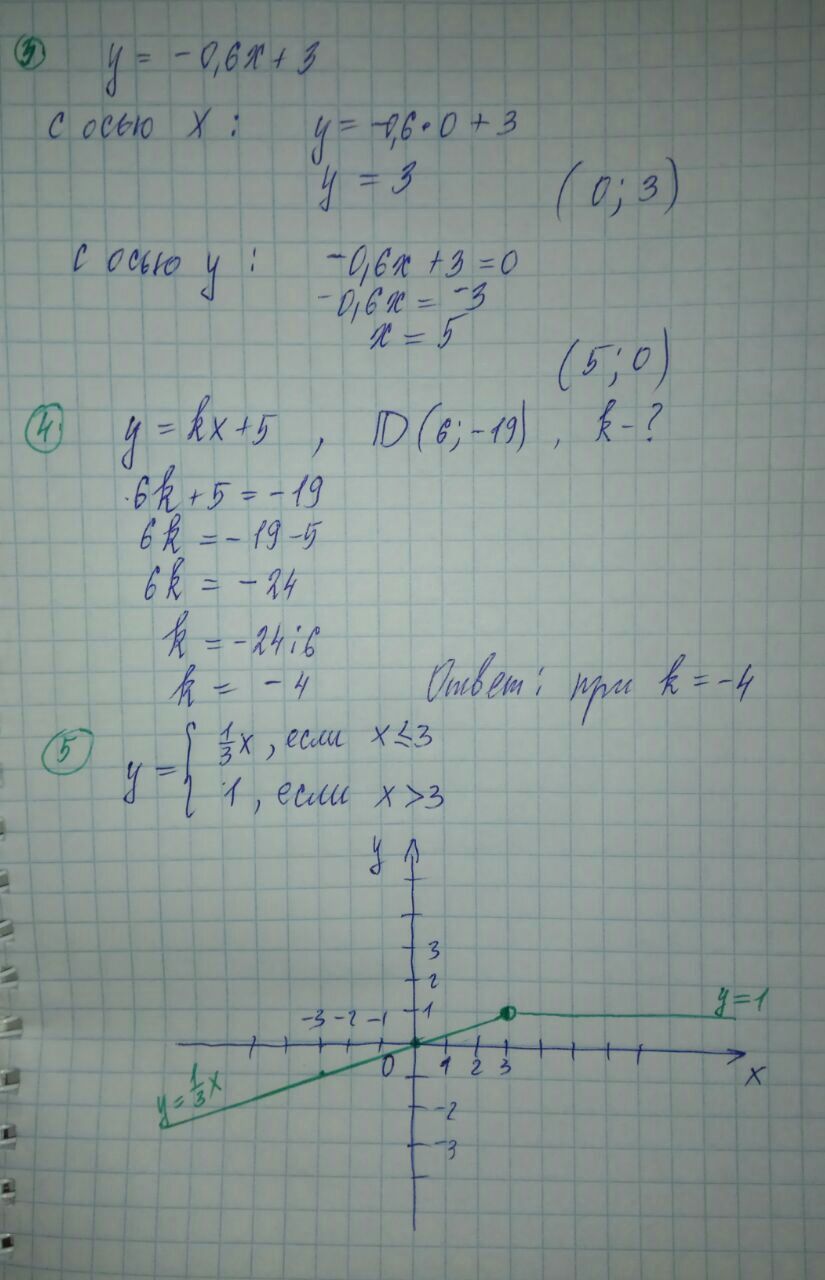 3 y = -0,6x + 3
с осью x : y = -0,6 • 0 + 3
y = 3 (0; 3)
с осью y : -0,6x + 3 = 0
-0,6x = -3
x = 5
(5; 0)
4 y = kx + 5 , D (6; -19) , k - ?
6k + 5 = -19
6k = -19 - 5
6k = -24
k = -24 : 6
k = -4 Ответ: при k = -4
5 y = { 1/3 x , если x ≤ 3
1 , если x > 3
y
3
2
-3 -2 -1 1 y = 1
0 1 2 3 x
y = 1/3 x
-2
-3